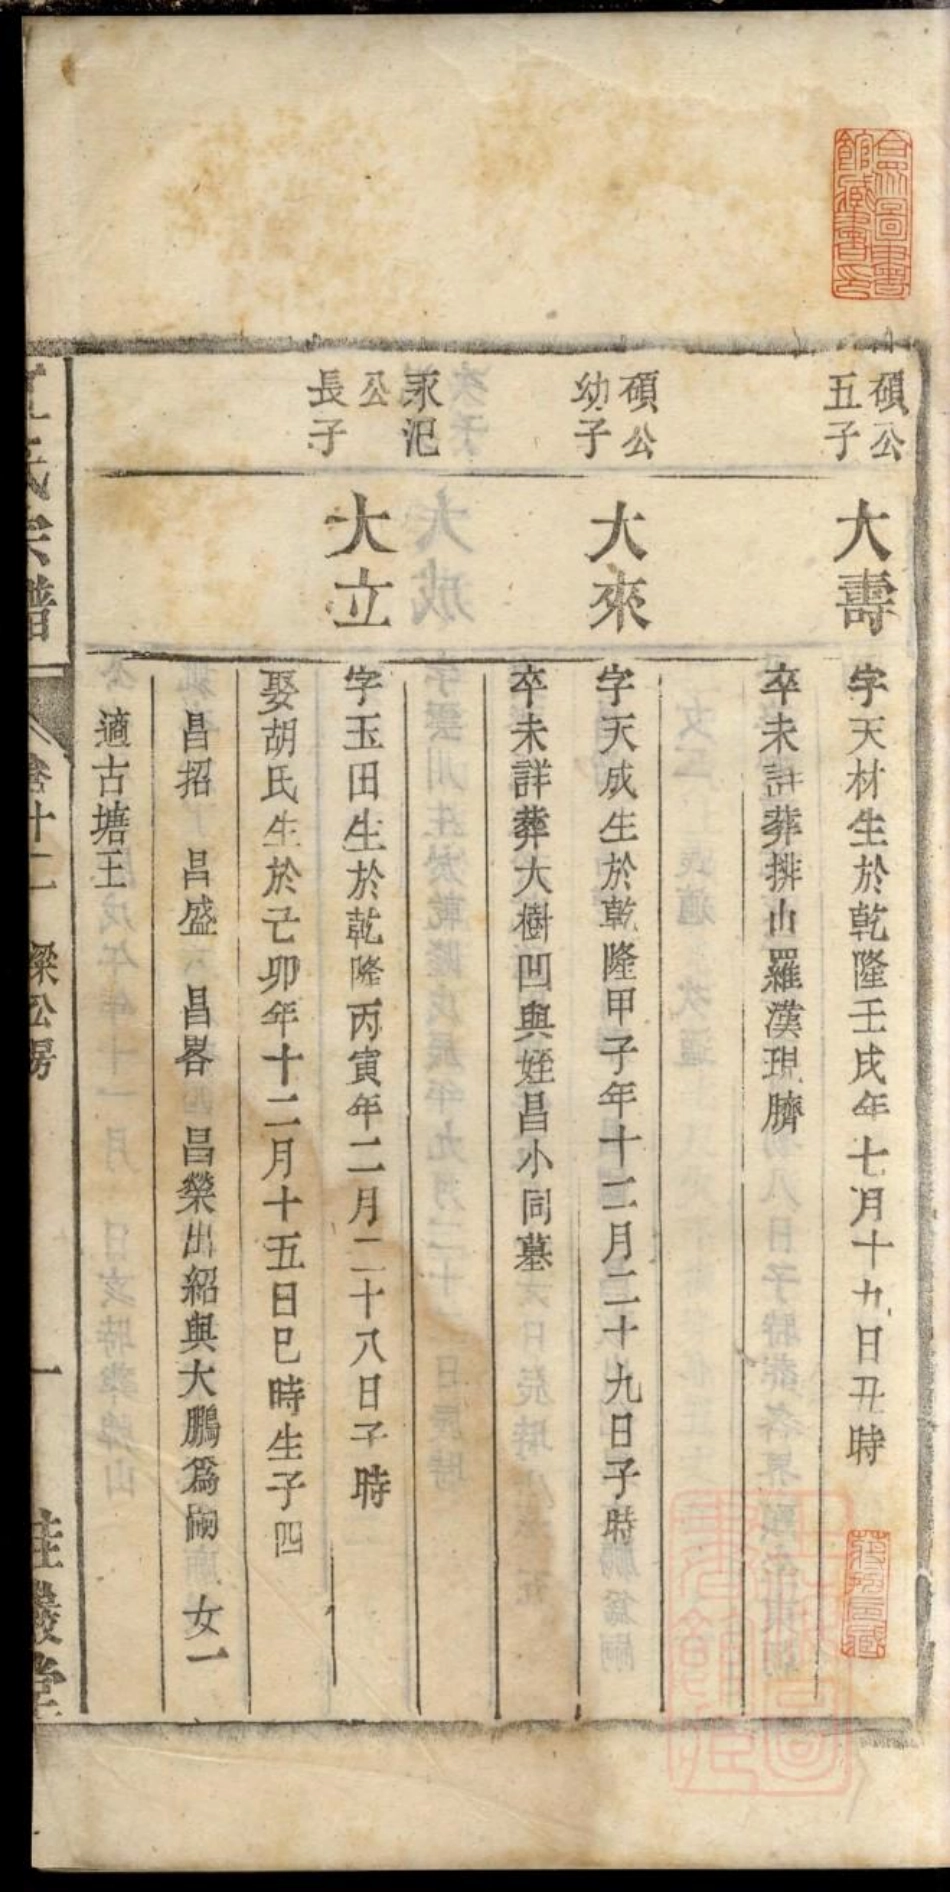 碩公
五子
大壽
字天材生於乾隆壬戌年七月十九日丑時
卒未詳葬排山羅漢現臍
碩公
幼子
大來
字天成生於乾隆甲子年十二月二十九日子時
卒未詳葬大樹凹與姪昌小同墓
永汜
公
長子
大立
字玉田生於乾隆丙寅年二月二十八日子時
娶胡氏生於己卯年十二月十五日巳時生子四
昌招 昌盛 昌畧 昌榮出紹與大鵬爲嗣 女一
適古塘王
氏宗譜
卷十二
公房
一